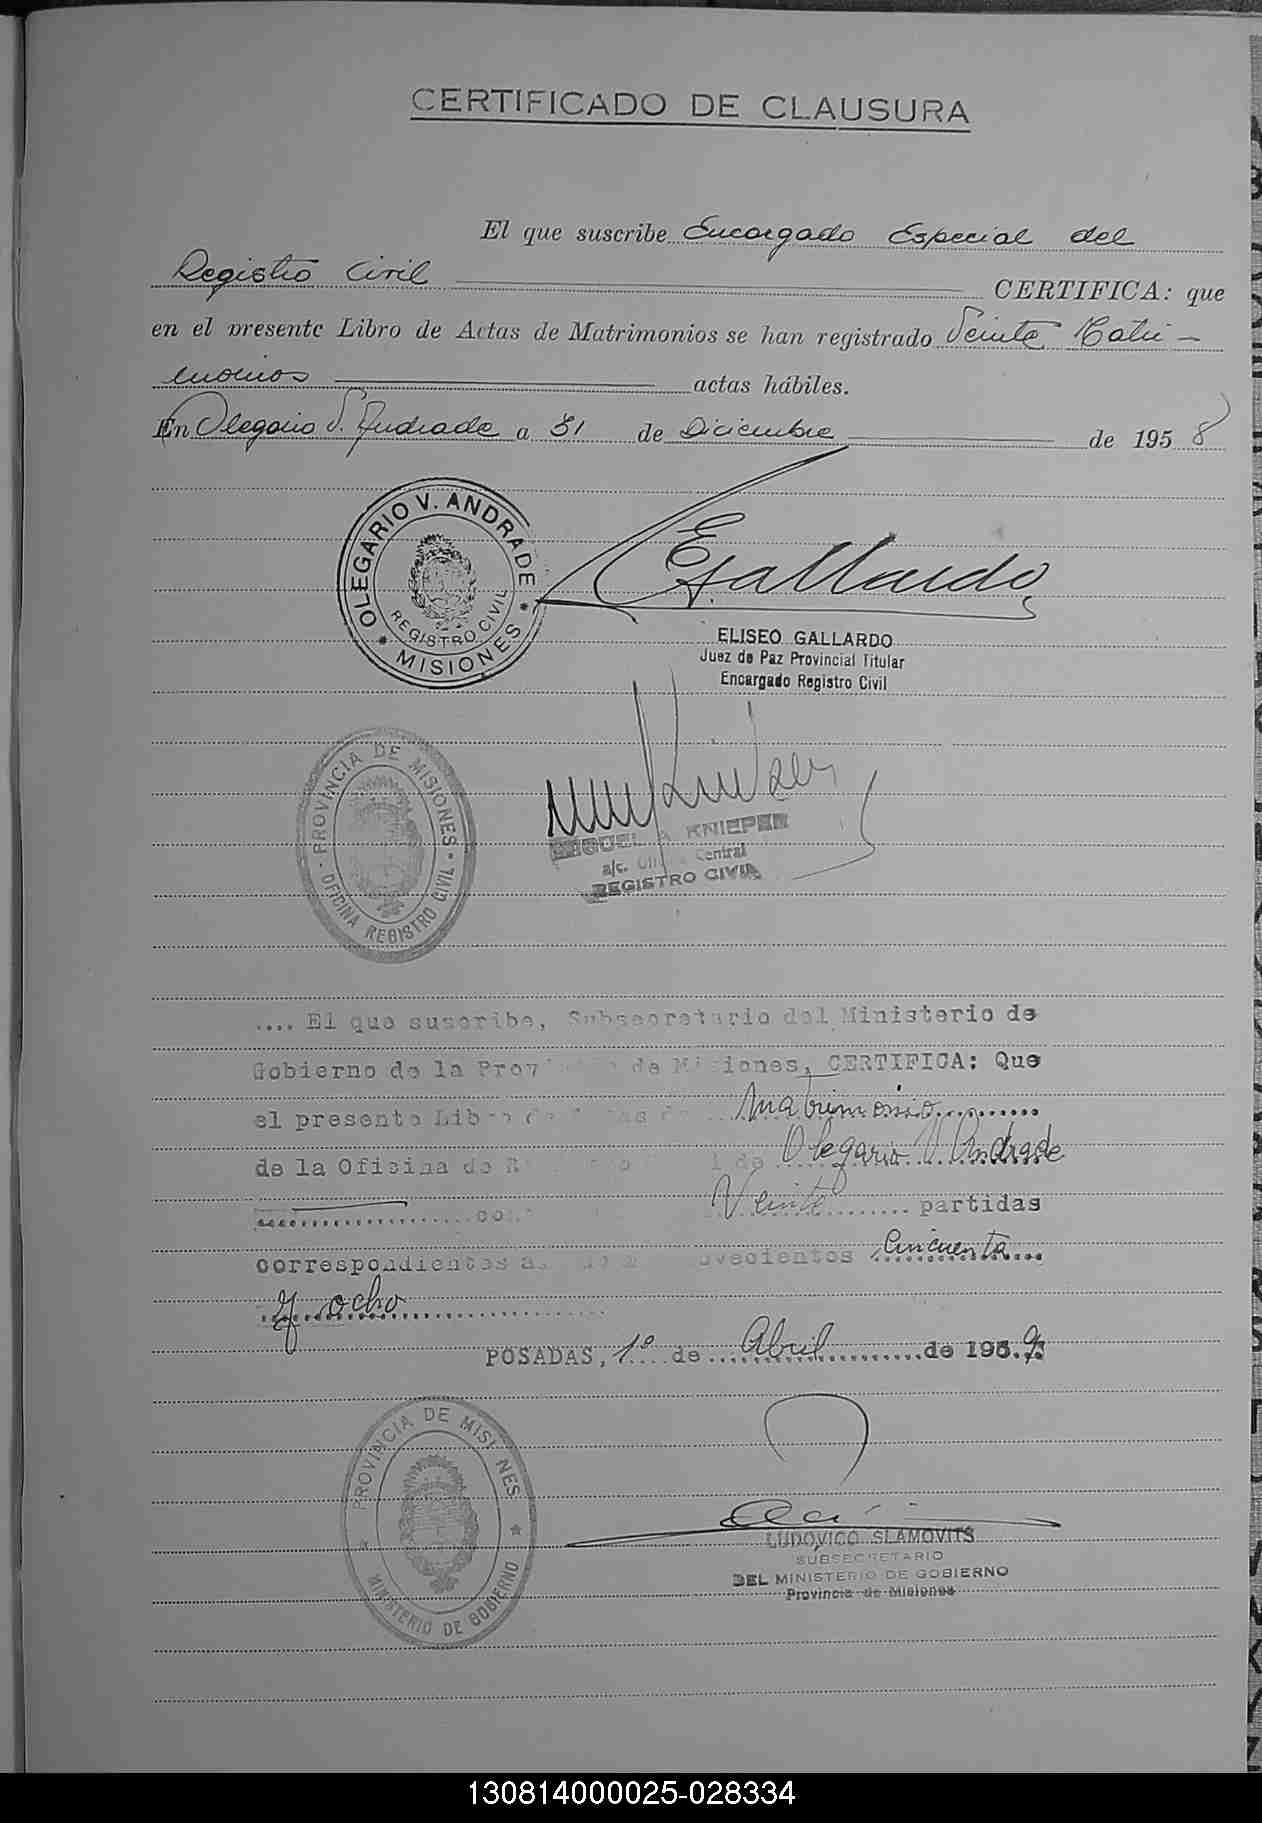 CERTIFICADO DE CLAUSURA
El que suscribe Encargado Especial del
Registro Civil CERTIFICA: que
en el presente Libro de Actas de Matrimonios se han registrado Veinte Matri-
monios actas hábiles.
En Olegario V. Andrade a 31 de Diciembre de 1958
OLEGARIO V. ANDRADE
REGISTRO CIVIL
MISIONES
EGallardo
ELISEO GALLARDO
Juez de Paz Provincial Titular
Encargado Registro Civil
PROVINCIA DE MISIONES
OFICINA REGISTRO CIVIL
MIGUEL A. KNIEPER
a/c. Central
REGISTRO CIVIL
.... El que suscribe, Subsecretario del Ministerio de
Gobierno de la Provincia de Misiones, CERTIFICA: Que
el presente Libro de Actas de Matrimonio..........
de la Oficina de Registro Civil de .... Olegario V. Andrade
.................... Veinte ........ partidas
correspondientes novecientos Cincuenta...
y ocho....................
POSADAS, 1º... de ... Abril .......... de 195.9.
PROVINCIA DE MISIONES
MINISTERIO DE GOBIERNO
LUDOVICO SLAMOVITS
SUBSECRETARIO
DEL MINISTERIO DE GOBIERNO
Provincia de Misiones
130814000025-028334